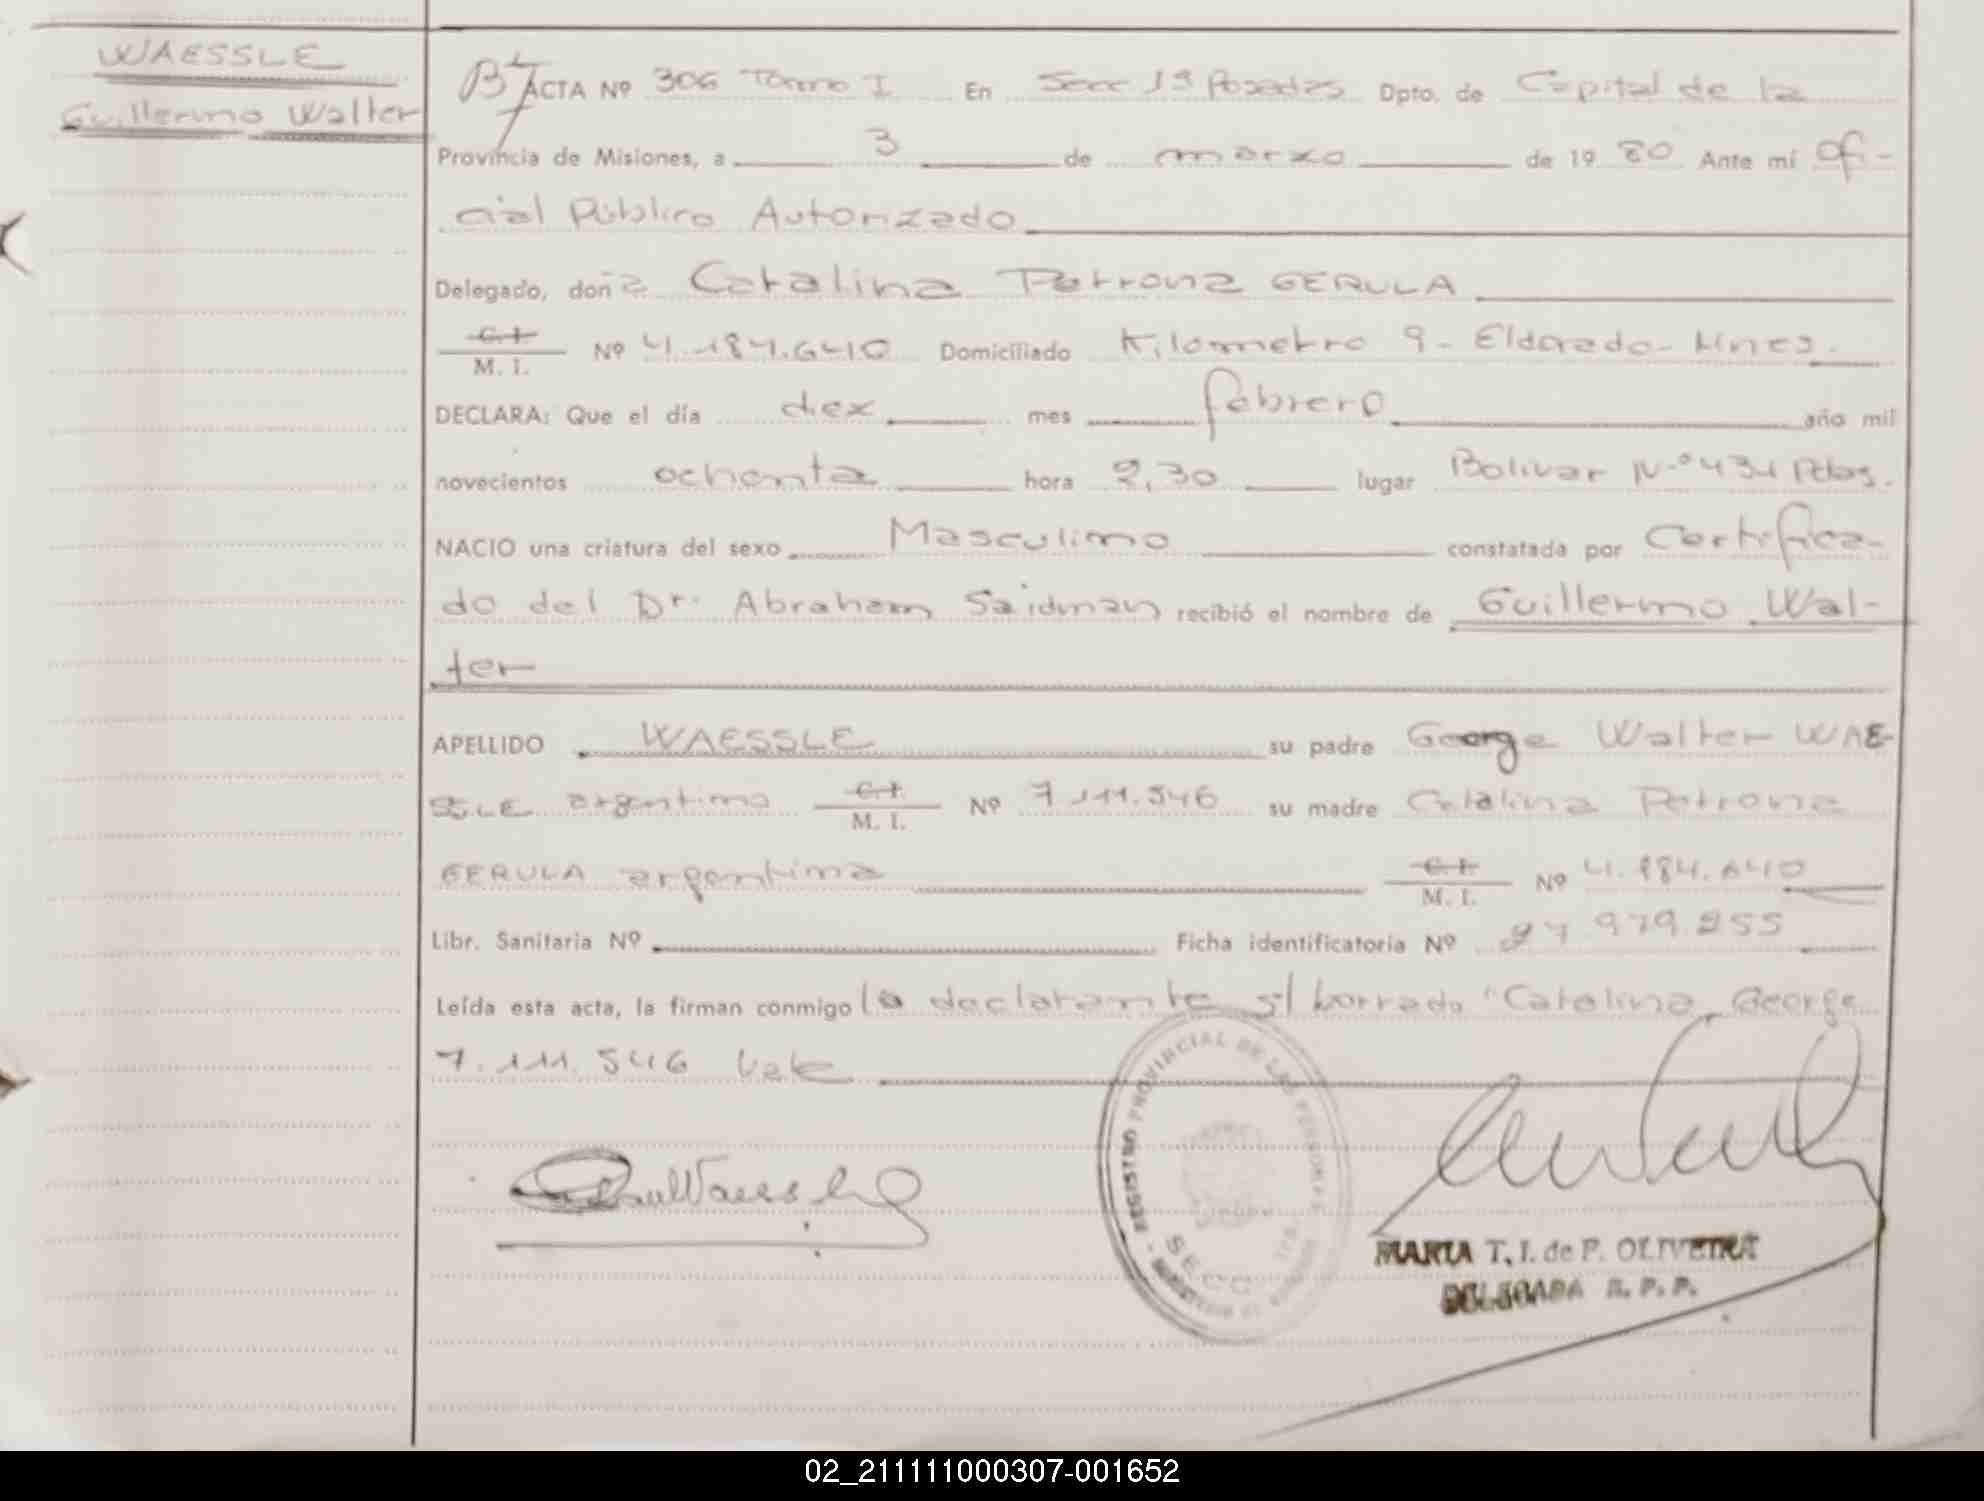 WAESSLE
Guillermo Walter
ACTA Nº 306 Tomo I En Secc 1ª Posadas Dpto. de Capital de la
Provincia de Misiones, a 3 de marzo de 19 80 Ante mí Ofi-
cial Público Autorizado
Delegado, doña Catalina Petrona GERULA
C.I. M. I. Nº 4.184.640 Domiciliado Kilometro 9 - Eldorado -
DECLARA: Que el día diez mes febrero año mil
novecientos ochenta hora 9,30 lugar Bolivar Nº 434 Pdas.
NACIO una criatura del sexo Masculino constatada por Certifica-
do del Dr. Abraham Saidman recibió el nombre de Guillermo Wal-
ter
APELLIDO WAESSLE su padre George Walter WAE-
SSLE argentino C.I. M. I. Nº 7.111.546 su madre Catalina Petrona
GERULA argentina C.I. M. I. Nº 4.184.640
Libr. Sanitaria Nº Ficha identificatoria Nº 27 979.255
Leída esta acta, la firman conmigo la declarante s/ borrado "Catalina, George
7.111.546 Vale
REGISTRO PROVINCIAL DE LAS PERSONAS
SECC. 1ra.
MARIA T. I. de P. OLIVEIRA
DELEGADA R. P. P.
02_211111000307-001652